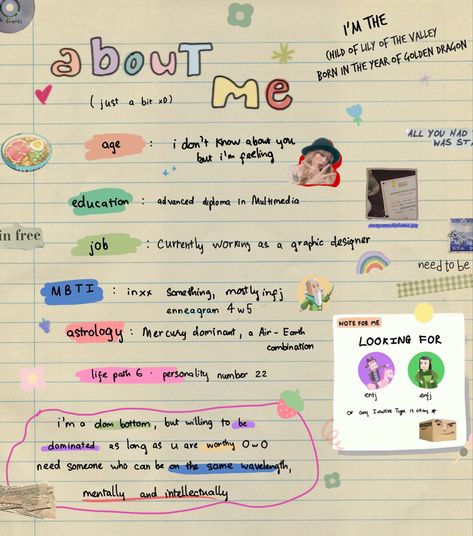 friends
about
me
(just a bit xD)
I'M THE
CHILD OF LILY OF THE VALLEY
BORN IN THE YEAR OF GOLDEN DRAGON
age : i don't know about you
but i'm feeling
ALL YOU HAD
WAS STA
education : advanced diploma in Multimedia
in free
job : Currently working as a graphic designer
need to be
MBTI : inxx something, mostly infj
enneagram 4w5
astrology : Mercury dominant, a Air-Earth
combination
life path 6 · personality number 22
NOTE FOR ME
LOOKING FOR
entj
enfj
or any Intuitive Type is okay
i'm a dom bottom, but willing to be
dominated as long as u are worthy OwO
need someone who can be on the same wavelength,
mentally and intellectually